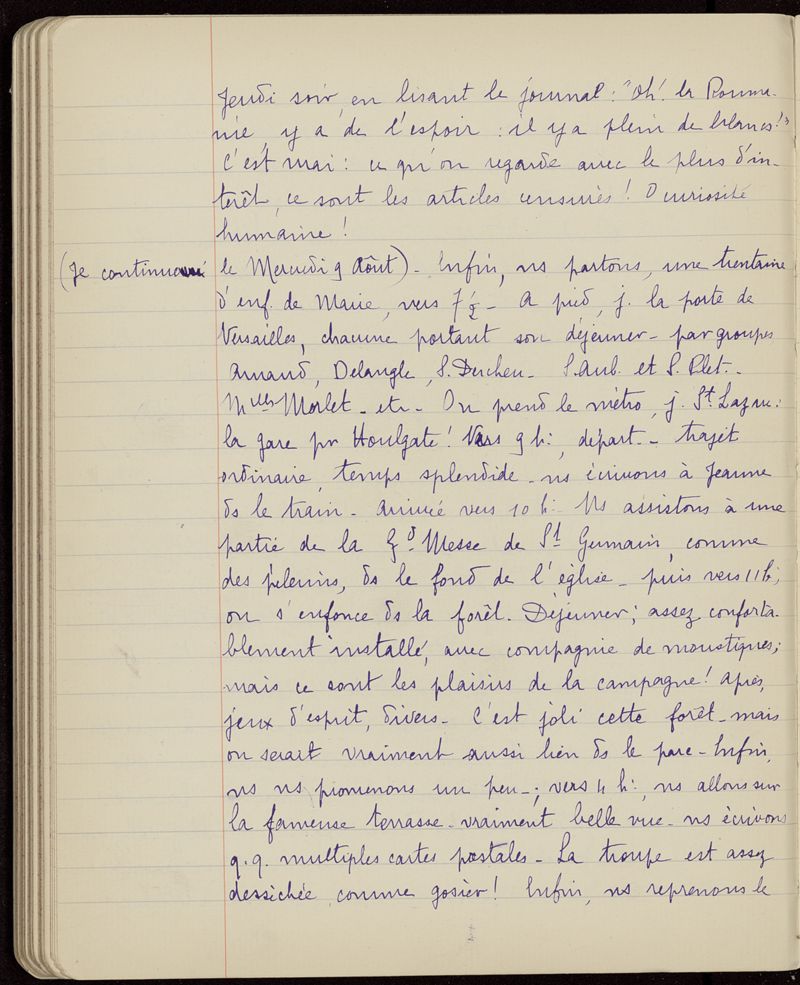 Jeudi soir, en lisant le journal : "Oh! la Rouma-
nie, y a de l'espoir : il y a plein de blancs!"
C'est vrai : ce qu'on regarde avec le plus d'in-
terêt, ce sont les articles censurés! O curiosité
humaine!
(Je continue le Mercredi 9 Août) - Enfin, ns partons, une trentaine
d'enf. de Marie, vers 7 1/2 - A pied, j. la porte de
Versailles, chacune portant son déjeuner - par groupes
Arnaud, Delangle, S. Duchen - S. Aub. et S. Plet. -
Mlles Morlet - etc - On prend le métro, j. St Lazare :
la gare pr Houlgate! Vers 9 h :, départ - trajet
ordinaire, temps splendide - ns écrivons à Jeanne
ds le train - arrivée vers 10 h : Ns assistons à une
partie de la Gd Messe de St Germain, comme
des pèlerins, ds le fond de l'église - puis vers 11 h ;
on s'enfonce ds la forêt. Déjeuner ; assez conforta-
blement installé, avec compagnie de moustiques ;
mais ce sont les plaisirs de la campagne! Après,
jeux d'esprit, divers - C'est joli cette forêt - mais
on serait vraiment aussi bien ds le parc - Enfin,
ns ns promenons un peu - ; vers 4 h :, ns allons sur
la fameuse terrasse - vraiment belle vue - ns écrivons
q.q. multiples cartes postales - La troupe est assez
dessichée comme gosier! Enfin, ns reprenons le